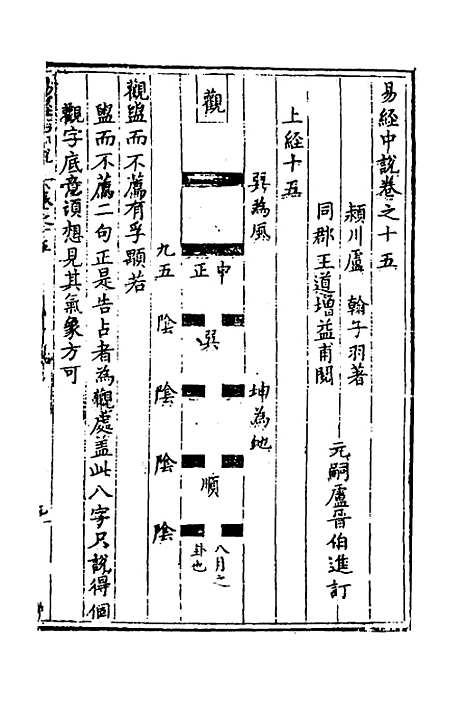 易經中說卷之十五
潁川盧　翰子羽著
同郡王道增益甫閱
元嗣盧晉伯進訂
上經十五
觀
巽為風
坤為地
中正
巽
順
八月之
卦也
九五
陰
陰
陰
陰
觀盥而不薦有孚顒若
盥而不薦二句正是告占者為觀處盖此八字只說得個
觀字底意須想見其氣象方可